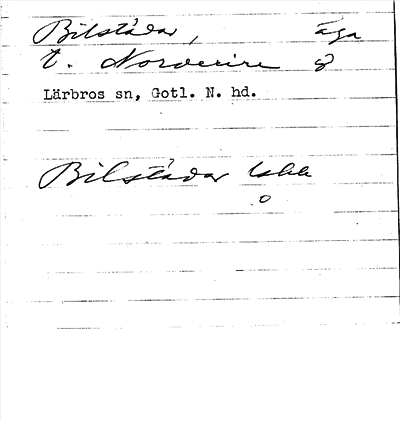 Bilstådar, äga
t. Norderire 8
Lärbros sn, Gotl. N. hd.
Bilstådar